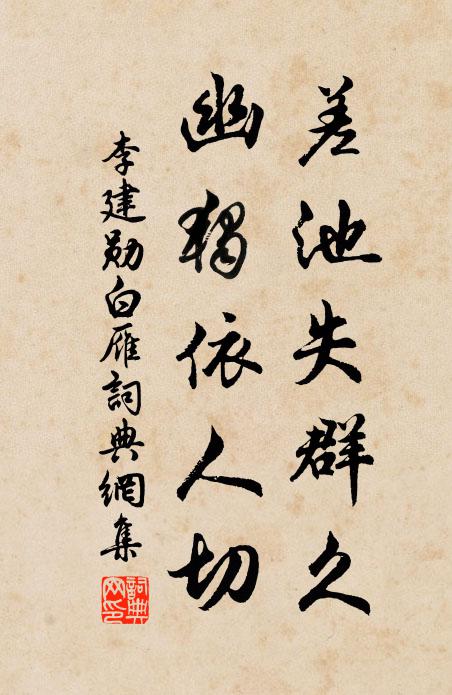 差池失群久
幽獨依人切
李建勛白雁詞典網集
詞典
网印